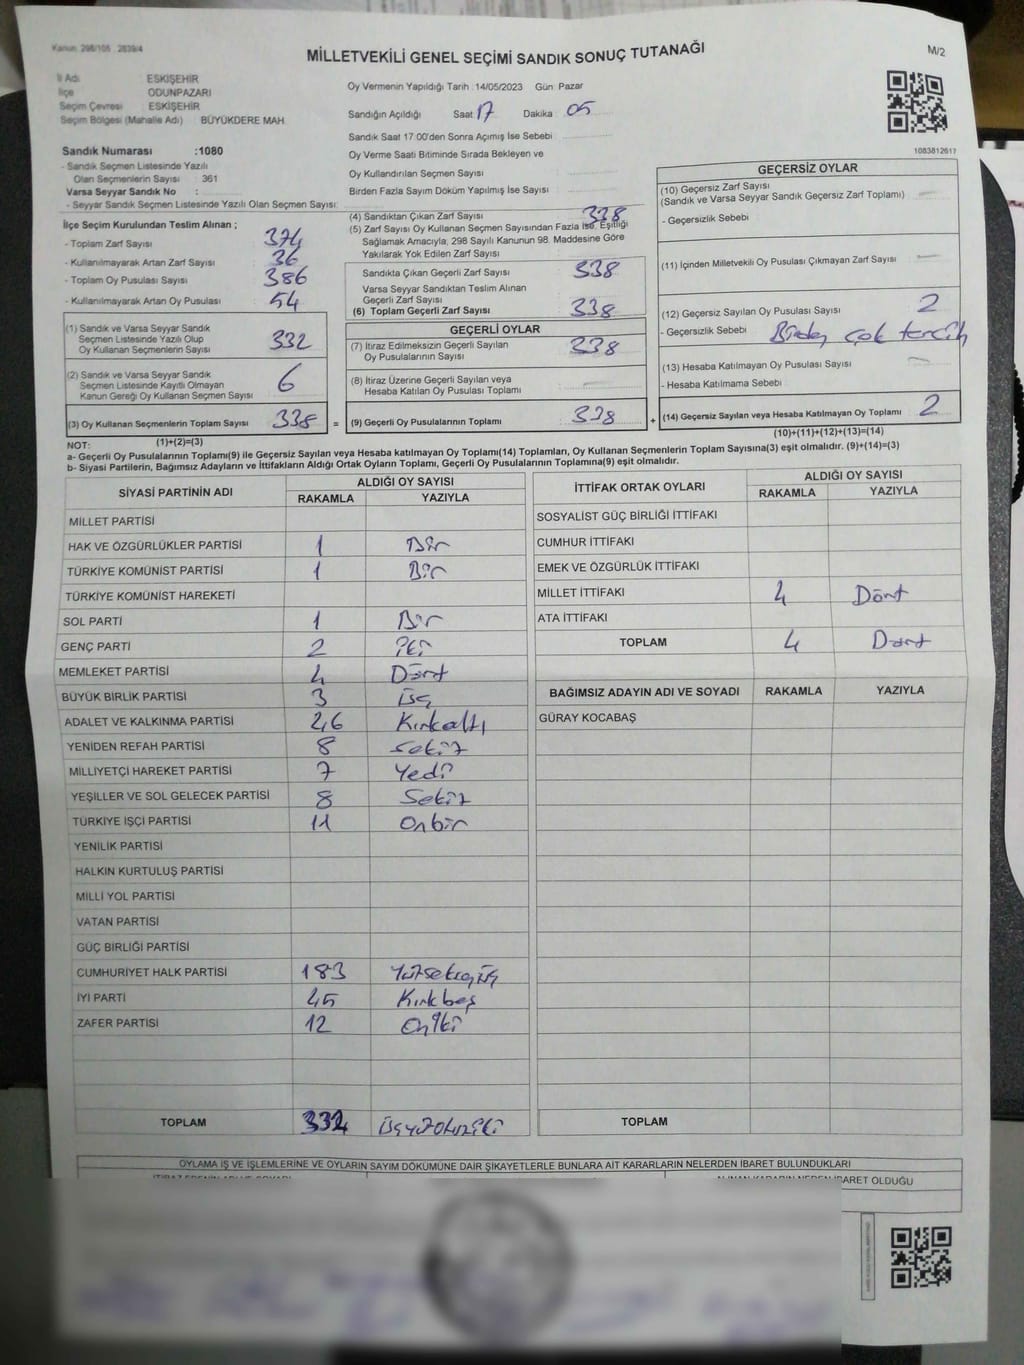 Kanun: 298/105 , 2839/4
MİLLETVEKİLİ GENEL SEÇİMİ SANDIK SONUÇ TUTANAĞI
M/2
İl Adı ESKİŞEHİR
İlçe ODUNPAZARI
Seçim Çevresi ESKİŞEHİR
Seçim Bölgesi (Mahalle Adı) BÜYÜKDERE MAH.
Oy Vermenin Yapıldığı Tarih :14/05/2023 Gün: Pazar
Sandığın Açıldığı Saat 17 Dakika : 05
Sandık Saat 17:00'den Sonra Açımış İse Sebebi
Oy Verme Saati Bitiminde Sırada Bekleyen ve
Oy Kullandırılan Seçmen Sayısı
Birden Fazla Sayım Döküm Yapılmış İse Sayısı
1083812617
Sandık Numarası :1080
- Sandık Seçmen Listesinde Yazılı
Olan Seçmenlerin Sayısı : 361
Varsa Seyyar Sandık No :
- Seyyar Sandık Seçmen Listesinde Yazılı Olan Seçmen Sayısı:
İlçe Seçim Kurulundan Teslim Alınan ;
- Toplam Zarf Sayısı 374
- Kullanılmayarak Artan Zarf Sayısı 36
- Toplam Oy Pusulası Sayısı 386
- Kullanılmayarak Artan Oy Pusulası 54
(1) Sandık ve Varsa Seyyar Sandık
Seçmen Listesinde Yazılı Olup
Oy Kullanan Seçmenlerin Sayısı 332
(2) Sandık ve Varsa Seyyar Sandık
Seçmen Listesinde Kayıtlı Olmayan
Kanun Gereği Oy Kullanan Seçmen Sayısı 6
(3) Oy Kullanan Seçmenlerin Toplam Sayısı 338 =
(4) Sandıktan Çıkan Zarf Sayısı 338
(5) Zarf Sayısı Oy Kullanan Seçmen Sayısından Fazla İse, Eşitliği
Sağlamak Amacıyla, 298 Sayılı Kanunun 98. Maddesine Göre
Yakılarak Yok Edilen Zarf Sayısı
Sandıkta Çıkan Geçerli Zarf Sayısı 338
Varsa Seyyar Sandıktan Teslim Alınan
Geçerli Zarf Sayısı
(6) Toplam Geçerli Zarf Sayısı 338
GEÇERLİ OYLAR
(7) İtiraz Edilmeksizin Geçerli Sayılan
Oy Pusulalarının Sayısı 338
(8) İtiraz Üzerine Geçerli Sayılan veya
Hesaba Katılan Oy Pusulası Toplamı
(9) Geçerli Oy Pusulalarının Toplamı 338 +
GEÇERSİZ OYLAR
(10) Geçersiz Zarf Sayısı
(Sandık ve Varsa Seyyar Sandık Geçersiz Zarf Toplamı)
- Geçersizlik Sebebi
(11) İçinden Milletvekili Oy Pusulası Çıkmayan Zarf Sayısı
(12) Geçersiz Sayılan Oy Pusulası Sayısı 2
- Geçersizlik Sebebi Birden çok tercih
(13) Hesaba Katılmayan Oy Pusulası Sayısı
- Hesaba Katılmama Sebebi
(14) Geçersiz Sayılan veya Hesaba Katılmayan Oy Toplamı 2
NOT: (1)+(2)=(3)
(10)+(11)+(12)+(13)=(14)
a- Geçerli Oy Pusulalarının Toplamı(9) ile Geçersiz Sayılan veya Hesaba katılmayan Oy Toplamı(14) Toplamları, Oy Kullanan Seçmenlerin Toplam Sayısına(3) eşit olmalıdır. (9)+(14)=(3)
b- Siyasi Partilerin, Bağımsız Adayların ve İttifakların Aldığı Ortak Oyların Toplamı, Geçerli Oy Pusulalarının Toplamına(9) eşit olmalıdır.
SİYASİ PARTİNİN ADI ALDIĞI OY SAYISI
RAKAMLA YAZIYLA
MİLLET PARTİSİ
HAK VE ÖZGÜRLÜKLER PARTİSİ 1 Bir
TÜRKİYE KOMÜNİST PARTİSİ 1 Bir
TÜRKİYE KOMÜNİST HAREKETİ
SOL PARTİ 1 Bir
GENÇ PARTİ 2 İki
MEMLEKET PARTİSİ 4 Dört
BÜYÜK BİRLİK PARTİSİ 3 üç
ADALET VE KALKINMA PARTİSİ 46 Kırkaltı
YENİDEN REFAH PARTİSİ 8 Sekiz
MİLLİYETÇİ HAREKET PARTİSİ 7 Yedi
YEŞİLLER VE SOL GELECEK PARTİSİ 8 Sekiz
TÜRKİYE İŞÇİ PARTİSİ 11 Onbir
YENİLİK PARTİSİ
HALKIN KURTULUŞ PARTİSİ
MİLLİ YOL PARTİSİ
VATAN PARTİSİ
GÜÇ BİRLİĞİ PARTİSİ
CUMHURİYET HALK PARTİSİ 183 Yüzseksenüç
İYİ PARTİ 45 Kırkbeş
ZAFER PARTİSİ 12 Oniki
TOPLAM 332 üçyüzotuziki
İTTİFAK ORTAK OYLARI ALDIĞI OY SAYISI
RAKAMLA YAZIYLA
SOSYALİST GÜÇ BİRLİĞİ İTTİFAKI
CUMHUR İTTİFAKI
EMEK VE ÖZGÜRLÜK İTTİFAKI
MİLLET İTTİFAKI 4 Dört
ATA İTTİFAKI
TOPLAM 4 Dört
BAĞIMSIZ ADAYIN ADI VE SOYADI RAKAMLA YAZIYLA
GÜRAY KOCABAŞ
TOPLAM
OYLAMA İŞ VE İŞLEMLERİNE VE OYLARIN SAYIM DÖKÜMÜNE DAİR ŞİKAYETLERLE BUNLARA AİT KARARLARIN NELERDEN İBARET BULUNDUKLARI
İBARET OLDUĞU